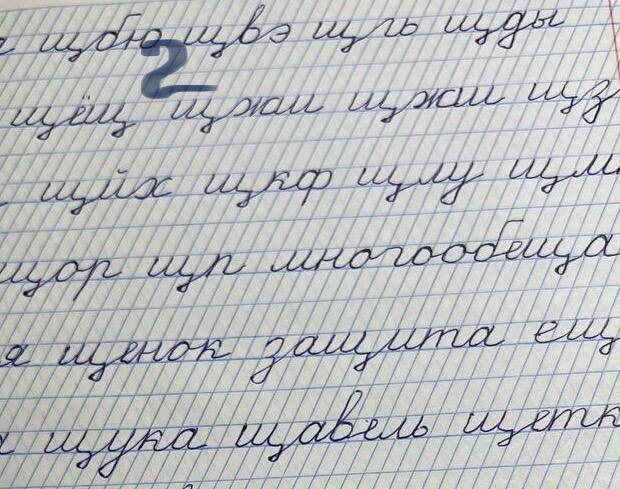 щбю щвэ щгь щды
2
щёщ щжи щжи щз
щйх щкф щлу щм
щор щп многообеща
я щенок защита ещ
щука щавель щетк